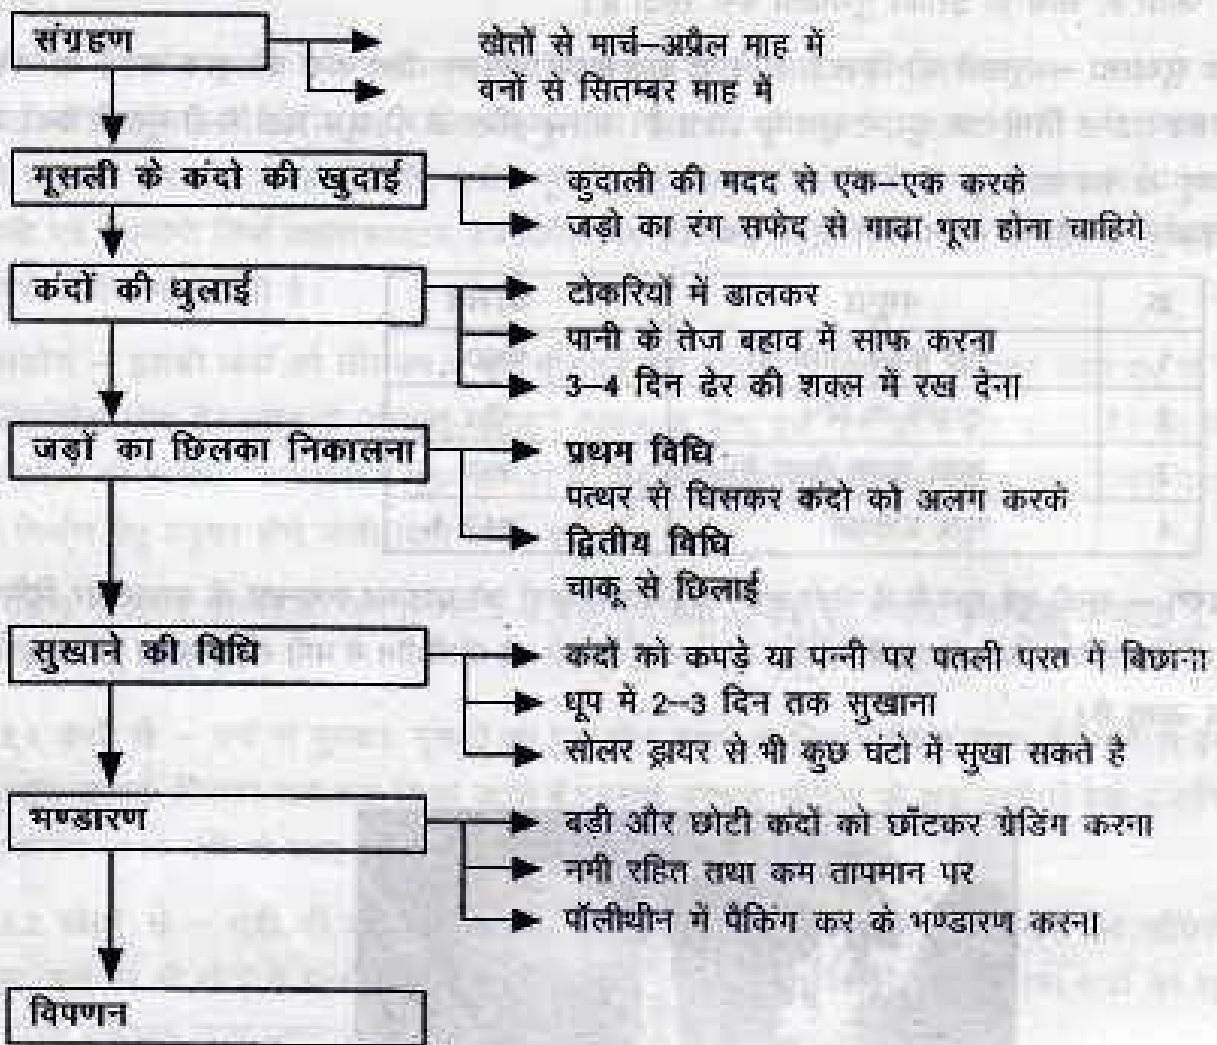 संग्रहण
खेतों से मार्च–अप्रैल माह में
वनों से सितम्बर माह में
मूसली के कंदो की खुदाई
कुदाली की मदद से एक–एक करके
जड़ो का रंग सफेद से गाढ़ा भूरा होना चाहिये
कंदों की धुलाई
टोकरियों में डालकर
पानी के तेज बहाव में साफ करना
3–4 दिन ढेर की शक्ल में रख देना
जड़ों का छिलका निकालना
प्रथम विधि
पत्थर से घिसकर कंदो को अलग करके
द्वितीय विधि
चाकू से छिलाई
सुखाने की विधि
कंदों को कपड़े या पन्नी पर पतली परत में बिछाना
धूप में 2–3 दिन तक सुखाना
सोलर ड्रायर से भी कुछ घंटो में सुखा सकते है
भण्डारण
बडी और छोटी कंदों को छाँटकर ग्रेडिंग करना
नमी रहित तथा कम तापमान पर
पॉलीथीन में पैकिंग कर के भण्डारण करना
विपणन